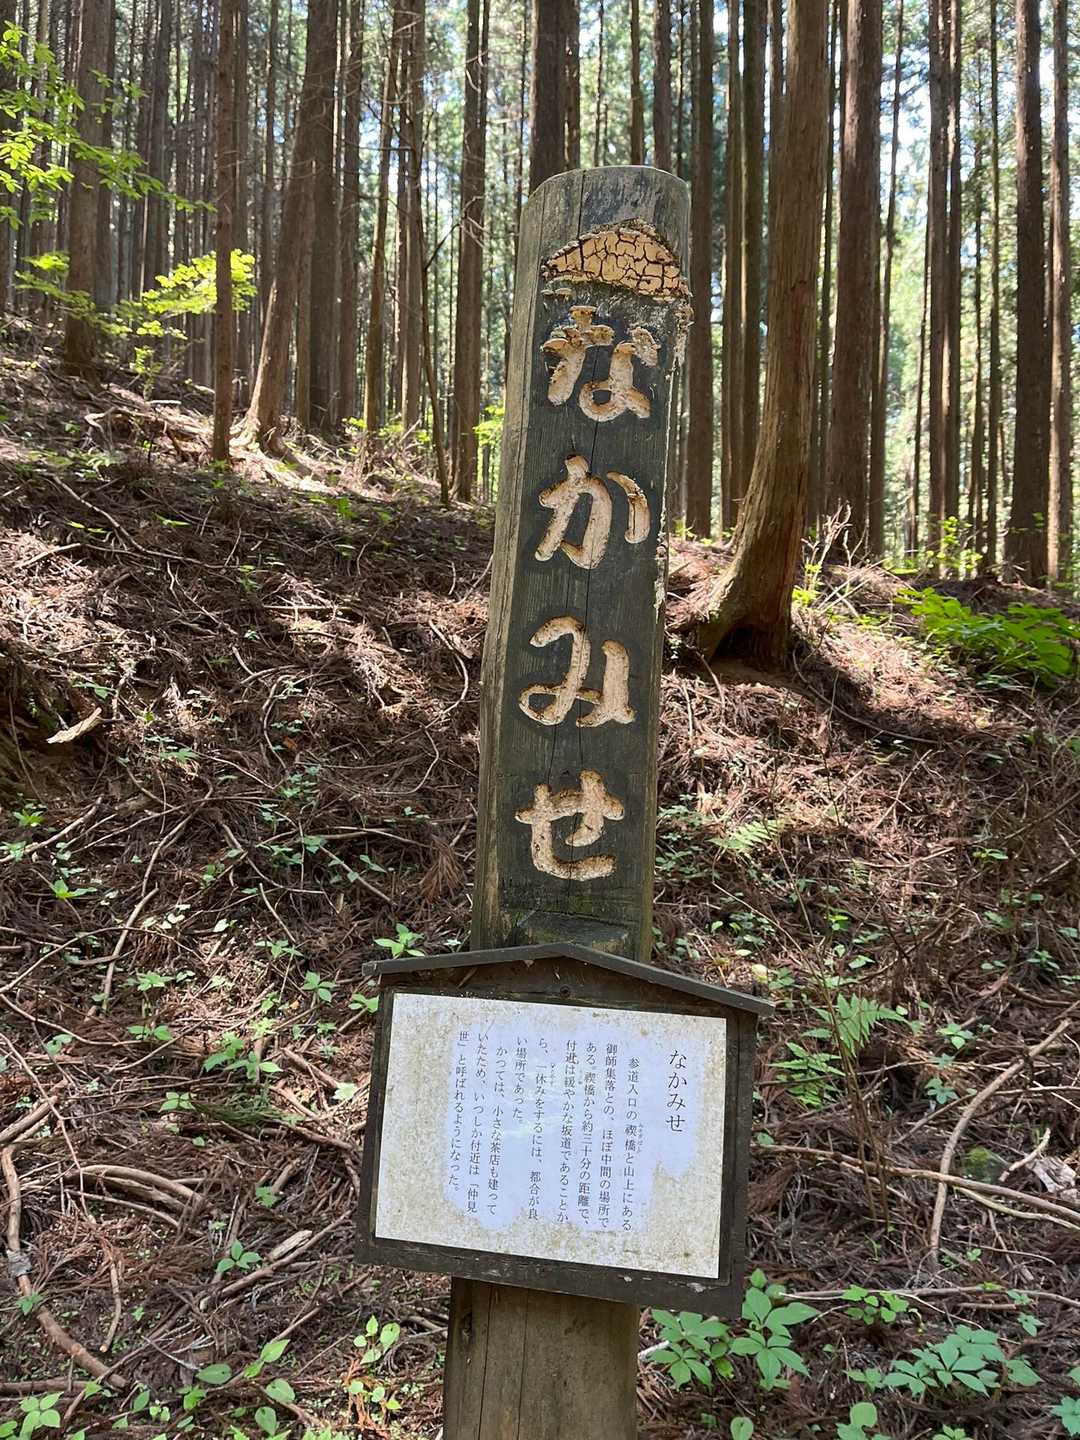 なかみせ
なかみせ
参道入口の禊橋と山上にある
みそぎばし
御師集落との、ほぼ中間の場所で
ある。禊橋から約三十分の距離で、
付近は緩やかな坂道であることか
ら、一休みをするには、都合が良
い場所であった。
かつては、小さな茶店も建って
いたため、いつしか付近は「仲見
世」と呼ばれるようになった。